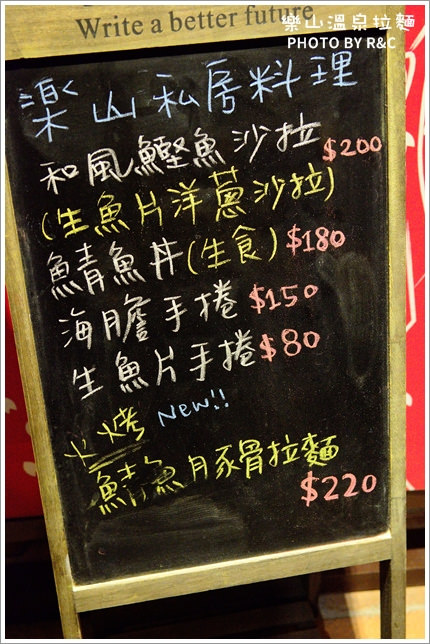 Write a better future
樂山溫泉拉麵
PHOTO BY R&C
楽山私房料理
和風鰹魚沙拉 $200
(生魚片洋蔥沙拉)
鯖魚丼(生食) $180
海膽手捲 $150
生魚片手捲 $80
火烤 New!!
鯖魚月豚骨拉麵
$220